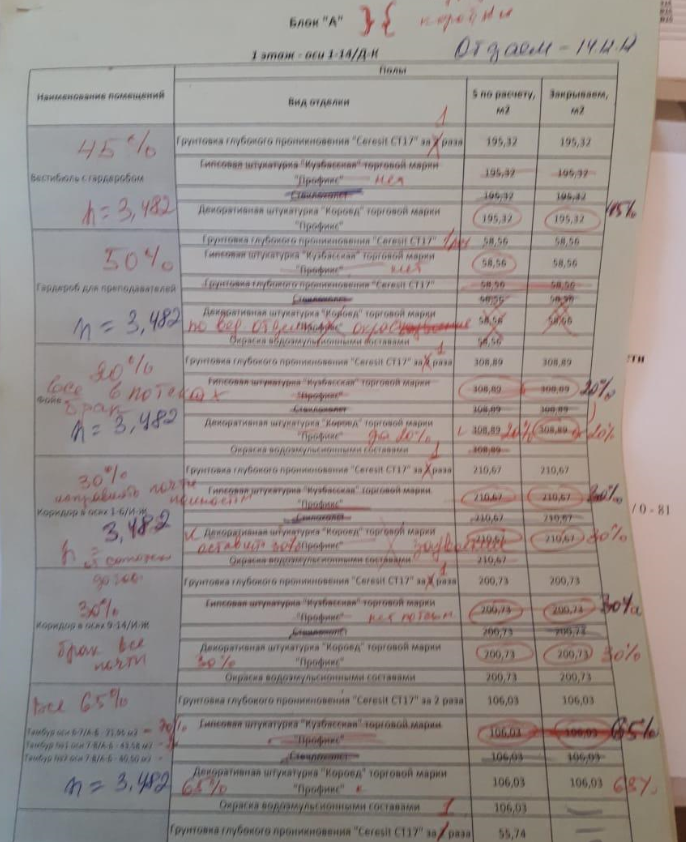 Блок "А" }{ короеды
1 этаж - оси 1-14/Д-К Отдаем - 14.12.12
Полы
Наименование помещений Вид отделки S по расчету, м2 Закрываем, м2
1
45% Грунтовка глубокого проникновения "Ceresit CT17" за 2 раза 195,32 195,32
Гипсовая штукатурка "Кузбасская" торговой марки "Профикс" нет 195,32 195,32
Вестибюль с гардеробом
Стеклохолст 195,32 195,32
h = 3,482 Декоративная штукатурка "Короед" торговой марки "Профикс" 195,32 195,32 45%
Грунтовка глубокого проникновения "Ceresit CT17" 1 раз 58,56 58,56
50% Гипсовая штукатурка "Кузбасская" торговой марки "Профикс" нет 58,56 58,56
Гардероб для преподавателей Грунтовка глубокого проникновения "Ceresit CT17" 58,56 58,56
Стеклохолст 58,56 58,56
h = 3,482 Декоративная штукатурка "Короед" торговой марки по всей 58,56 58,56
Окраска водоэмульсионными составами 58,56
1
20% Грунтовка глубокого проникновения "Ceresit CT17" за 2 раза 308,89 308,89
все в потеках Гипсовая штукатурка "Кузбасская" торговой марки "Профикс" 308,89 308,89 20%
Фойе брак
Стеклохолст 308,89 308,89
h = 3,482 Декоративная штукатурка "Короед" торговой марки "Профикс" до 20% 308,89 20% 308,89 20%
Окраска водоэмульсионными составами 308,89
1
30% Грунтовка глубокого проникновения "Ceresit CT17" за 2 раза 210,67 210,67
исправить почти полностью Гипсовая штукатурка "Кузбасская" торговой марки "Профикс" 210,67 210,67 30%
Коридор в осях 1-6/И-Ж
Стеклохолст 210,67 210,67
h = 3,482 Декоративная штукатурка "Короед" торговой марки "Профикс" оставить 30% 210,67 210,67 30%
Окраска водоэмульсионными составами 210,67
1
Грунтовка глубокого проникновения "Ceresit CT17" за 2 раза 200,73 200,73
30% Гипсовая штукатурка "Кузбасская" торговой марки "Профикс" нет 200,73 200,73 30%
Коридор в осях 9-14/И-Ж
Стеклохолст 200,73 200,73
брак все почти 30% Декоративная штукатурка "Короед" торговой марки "Профикс" 200,73 200,73 30%
Окраска водоэмульсионными составами 200,73 200,73
Все 65% Грунтовка глубокого проникновения "Ceresit CT17" за 2 раза 106,03 106,03
Гипсовая штукатурка "Кузбасская" торговой марки "Профикс" 106,03 106,03 65%
Стеклохолст 106,03 106,03
h = 3,482 65% Декоративная штукатурка "Короед" торговой марки "Профикс" 106,03 106,03 68%
Окраска водоэмульсионными составами 106,03
1
Грунтовка глубокого проникновения "Ceresit CT17" за раза 55,74
сти
/ 0 - 81